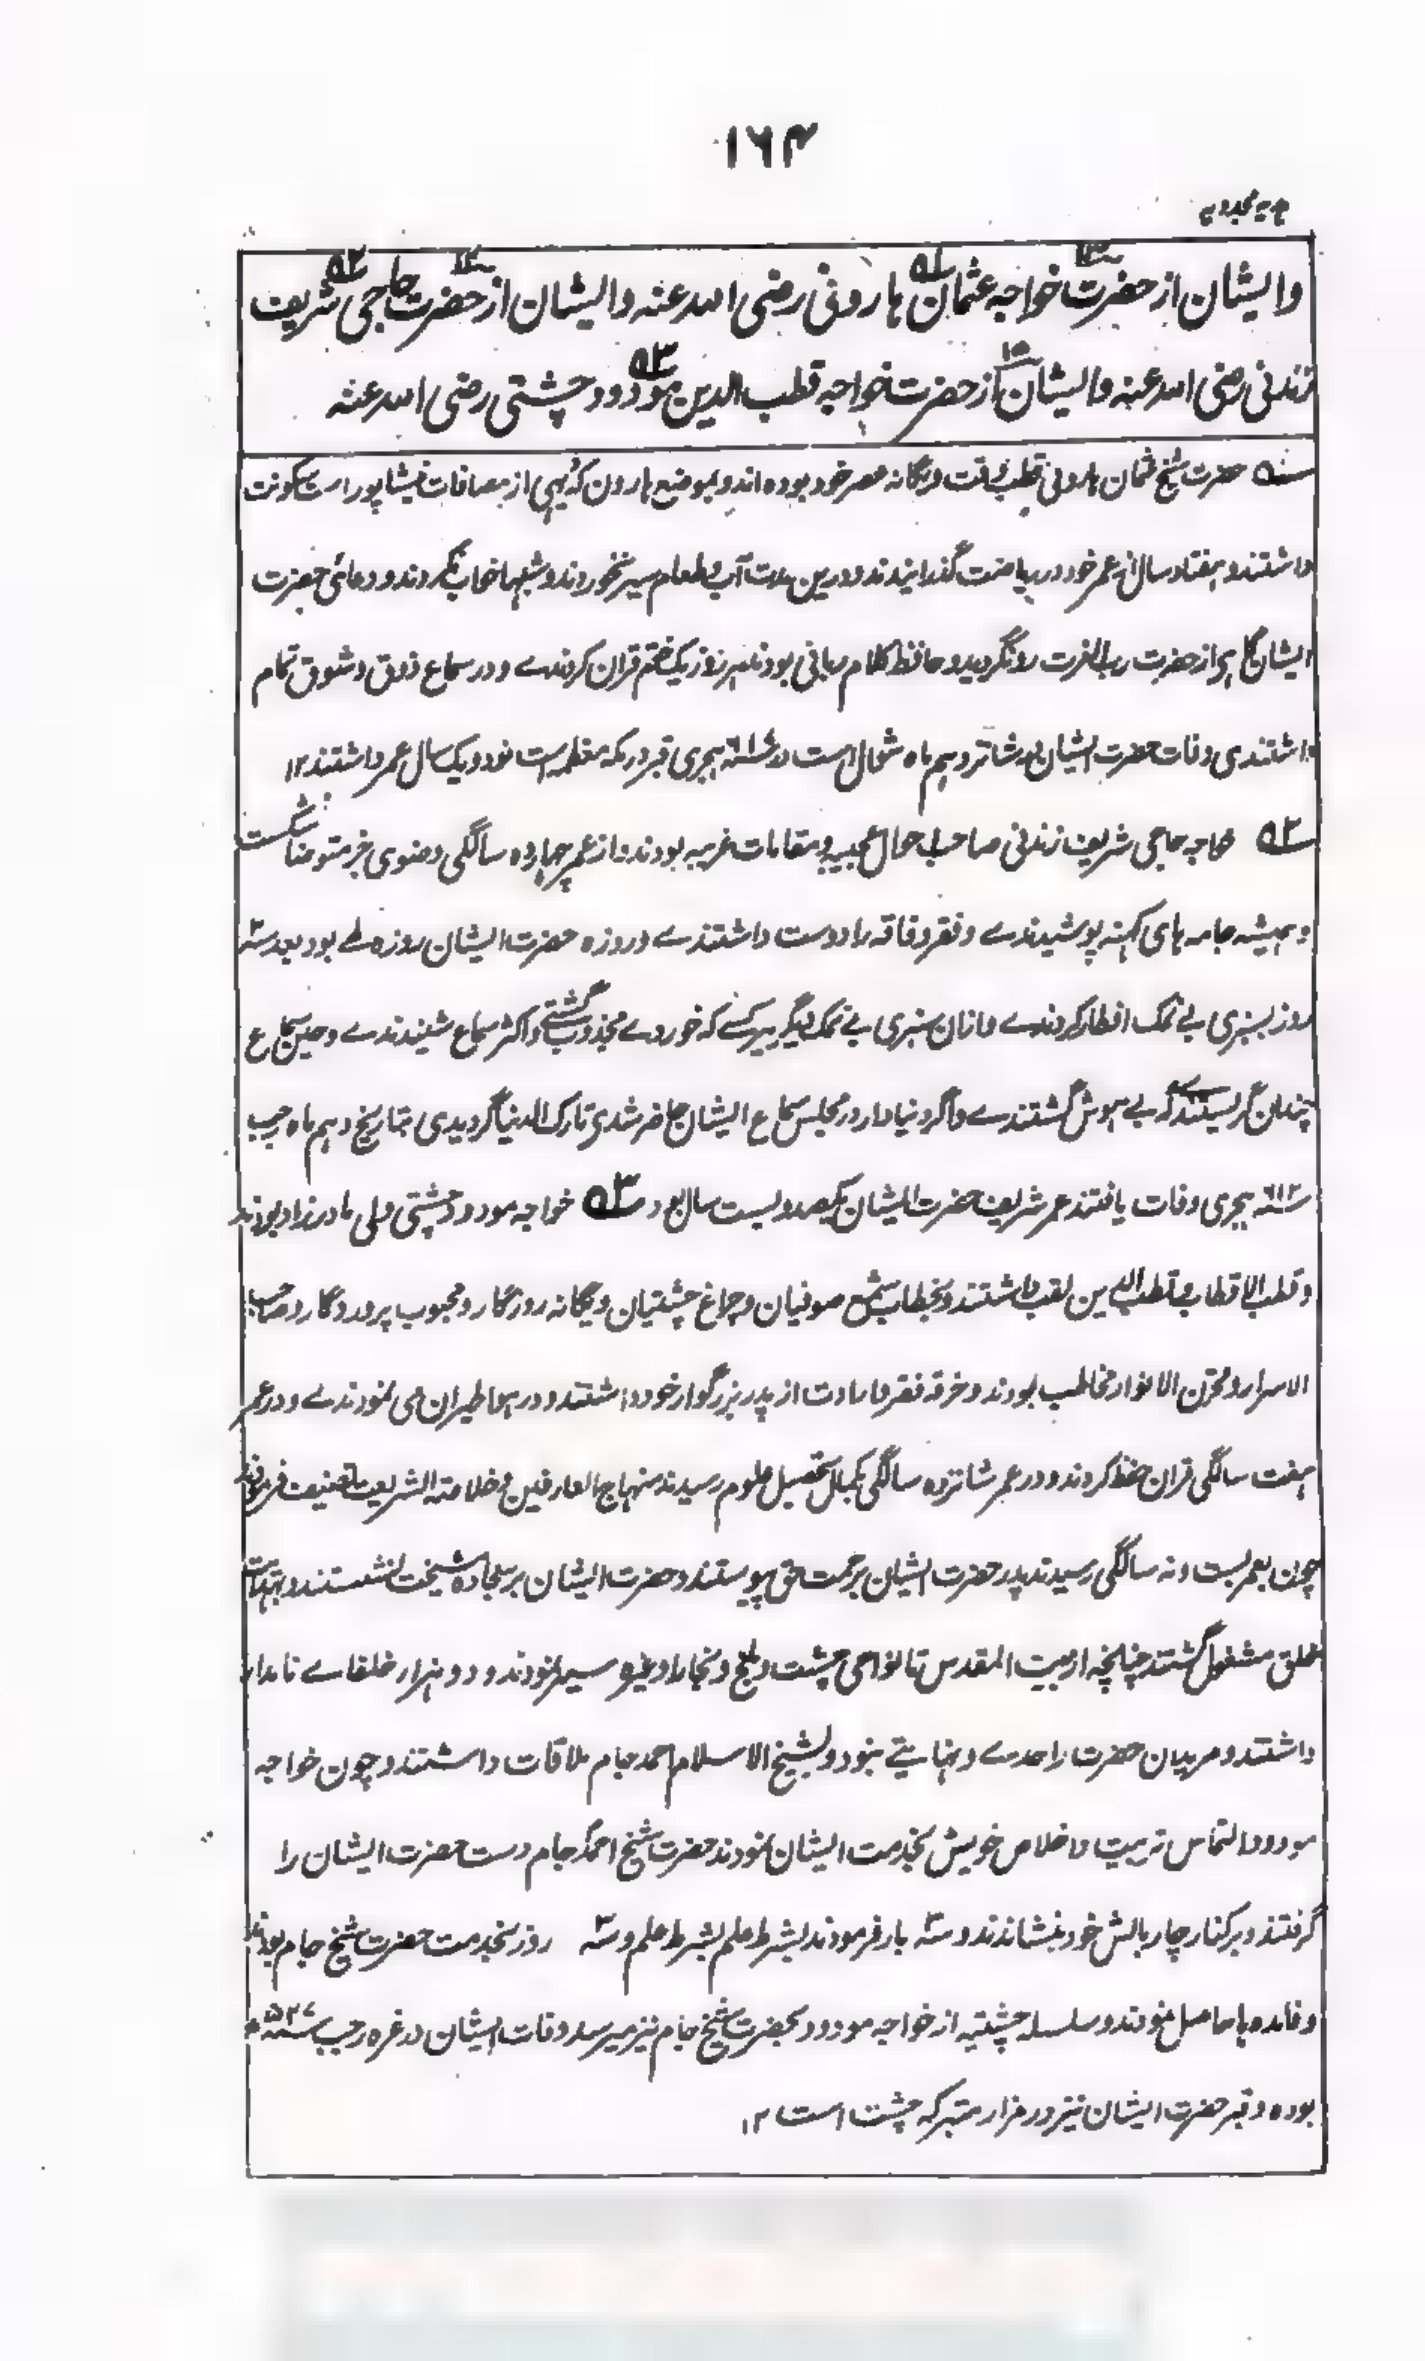 ۱۶۴
ہدیہ مجددیہ
وایشان از حضرت خواجہ عثمان ہارونی رضی اللہ عنہ وایشان از حضرت حاجی شریف
زندنی رضی اللہ عنہ وایشان از حضرت خواجہ قطب الدین مودود چشتی رضی اللہ عنہ
حضرت شیخ عثمان ہارونی قطب وقت ویگانہ عصر خود بودہ اند وبموضع ہارون کہ دیہی از مضافات نیشاپور است سکونت
داشتند وہفتاد سال از عمر خود در ریاضت گذرانیدند ودرین مدت آب وطعام سیر نخوردند وشبہا خواب نکردند ودعائی حضرت
ایشان گاہی از حضرت رب العزت رد نگردید وحافظ کلام ربانی بودند ہر روز یک ختم قران کردندے ودر سماع ذوق وشوق تمام
داشتندی وفات حضرت ایشان بہ شانزدہم ماہ شوال است در ہجری قبر در مکہ معظمہ است نود ویک سال عمر داشتند ۱۲
۵۲ خواجہ حاجی شریف زندنی صاحب احوال عجیبہ ومقامات غریبہ بودند واز عمر چہاردہ سالگی وضوی جز متوضا شکست
وہمیشہ جامہ ہای کہنہ پوشیدندے وفقر وفاقہ را دوست داشتندے وروزہ حضرت ایشان روزہ طے بود بعد سہ
روز بسبزی بے نمک افطار کردندے وازان سبزی بے نمک دیگر ہر کسے کہ خوردے مجذوب گشتے واکثر سماع شنیدندے وحین سماع
چندان گریستندے کہ بے ہوش گشتندے واگر دنیادار در مجلس سماع ایشان حاضر شدی تارک الدنیا گردیدی بتاریخ دہم ماہ رجب
۶۱۲ ہجری وفات یافتند عمر شریف حضرت ایشان یکصد وبیست سال بود ۵۳ خواجہ مودود چشتی ولی مادرزاد بودند
وقطب الاقطاب وقطب الدین لقب داشتند وبخطاب شمع صوفیان وچراغ چشتیان ویگانہ روزگار ومحبوب پروردگار وصاحب
الاسرار ومخزن الانوار مخاطب بودند وخرقہ فقر وارادت از پدر بزرگوار خود داشتند ودر ہوا طیران می نمودندے ودر عمر
ہفت سالگی قران حفظ کردند ودر عمر شانزدہ سالگی بکمال تحصیل علوم رسیدند منہاج العارفین وخلاصۃ الشریعت تصنیف فرمودند
چون بعمر بست ونہ سالگی رسیدند پدر حضرت ایشان برحمت حق پیوستند وحضرت ایشان بر سجادہ شیخت نشستند وبہدایت
خلق مشغول گشتند چنانچہ از بیت المقدس تا نواحی چشت وبلخ وبخارا وغیرہ سیر نمودند ودو ہزار خلفاے نامدار
داشتند ومریدان حضرت را حدے ونہایتے نبود وبشیخ الاسلام احمد جام ملاقات داشتند وچون خواجہ
مودود التماس تربیت واخلاص خویش بخدمت ایشان نمودند حضرت شیخ احمد جام دست حضرت ایشان را
گرفتند وبر کنار چار بالش خود بنشاندند وسہ بار فرمودند بشرط علم بشرط علم وسہ روز بخدمت حضرت شیخ جام بودند
وفائدہ ہا حاصل نمودند وسلسلہ چشتیہ از خواجہ مودود بحضرت شیخ جام نیز میرسد وفات ایشان در غرہ رجب ۵۲۷
بودہ وقبر حضرت ایشان نیز در مزار متبرکہ چشت است ۱۲